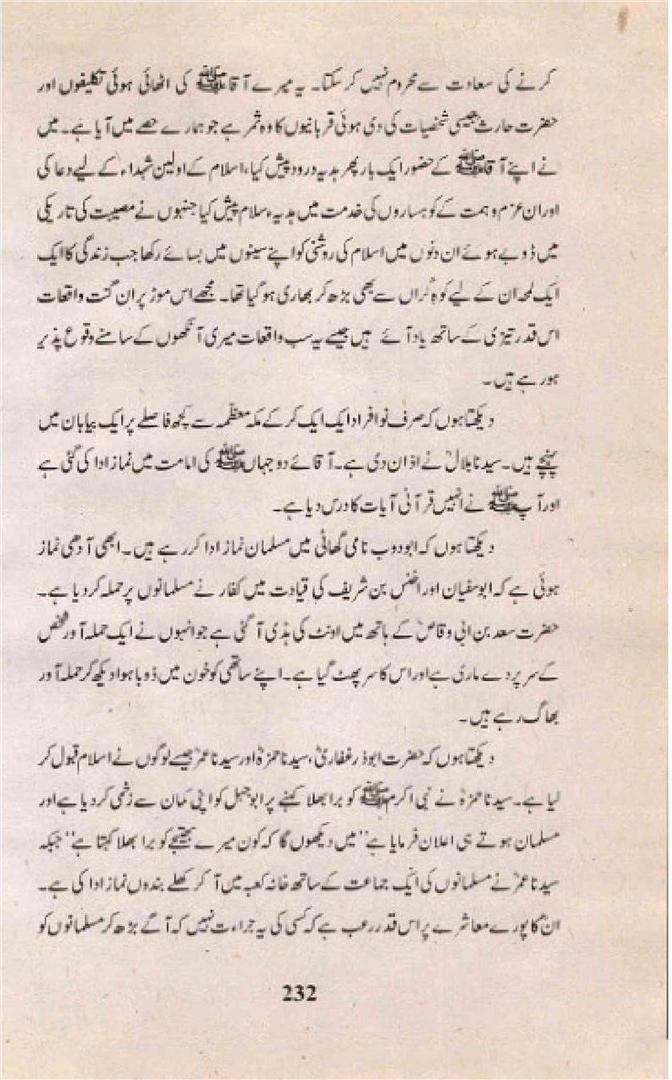 کرنے کی سعادت سے محروم نہیں کر سکتا۔ یہ میرے آقا ﷺ کی اٹھائی ہوئی تکلیفوں اور
حضرت حارثؓ جیسی شخصیات کی دی ہوئی قربانیوں کا وہ ثمر ہے جو ہمارے حصے میں آیا ہے۔ میں
نے اپنے آقا ﷺ کے حضور ایک بار پھر ہدیہ درود پیش کیا، اسلام کے اولین شہداء کے لیے دعا کی
اور ان عزم و ہمت کے کوہساروں کی خدمت میں ہدیہء سلام پیش کیا جنہوں نے مصیبت کی تاریکی
میں ڈوبے ہوئے ان دنوں میں اسلام کی روشنی کو اپنے سینوں میں بسائے رکھا جب زندگی کا ایک
ایک لمحہ ان کے لیے کوہ گراں سے بھی بڑھ کر بھاری ہو گیا تھا۔ مجھے اس موڑ پر ان گنت واقعات
اس قدر تیزی کے ساتھ یاد آئے ہیں جیسے یہ سب واقعات میری آنکھوں کے سامنے وقوع پذیر
ہو رہے ہیں۔
دیکھتا ہوں کہ صرف نو افراد ایک ایک کر کے مکہ معظمہ سے کچھ فاصلے پر ایک بیابان میں
پہنچے ہیں۔ سیدنا بلالؓ نے اذان دی ہے۔ آقائے دو جہاں ﷺ کی امامت میں نماز ادا کی گئی ہے
اور آپ ﷺ نے انہیں قرآنی آیات کا درس دیا ہے۔
دیکھتا ہوں کہ ابودوب نامی گھاٹی میں مسلمان نماز ادا کر رہے ہیں۔ ابھی آدھی نماز
ہوئی ہے کہ ابوسفیان اور اخنس بن شریف کی قیادت میں کفار نے مسلمانوں پر حملہ کر دیا ہے۔
حضرت سعد بن ابی وقاصؓ کے ہاتھ میں اونٹ کی ہڈی آ گئی ہے جو انہوں نے ایک حملہ آور شخص
کے سر پر دے ماری ہے اور اس کا سر پھٹ گیا ہے۔ اپنے ساتھی کو خون میں ڈوبا ہوا دیکھ کر حملہ آور
بھاگ رہے ہیں۔
دیکھتا ہوں کہ حضرت ابوذر غفاریؓ، سیدنا حمزہؓ اور سیدنا عمرؓ جیسے لوگوں نے اسلام قبول کر
لیا ہے۔ سیدنا حمزہؓ نے نبی اکرم ﷺ کو برا بھلا کہنے پر ابوجہل کو اپنی کمان سے زخمی کر دیا ہے اور
مسلمان ہوتے ہی اعلان فرمایا ہے "میں دیکھوں گا کہ کون میرے بھتیجے کو برا بھلا کہتا ہے" جبکہ
سیدنا عمرؓ نے مسلمانوں کی ایک جماعت کے ساتھ خانہ کعبہ میں آ کر کھلے بندوں نماز ادا کی ہے۔
انؓ کا پورے معاشرے پر اس قدر رعب ہے کہ کسی کی یہ جراءت نہیں کہ آگے بڑھ کر مسلمانوں کو
232